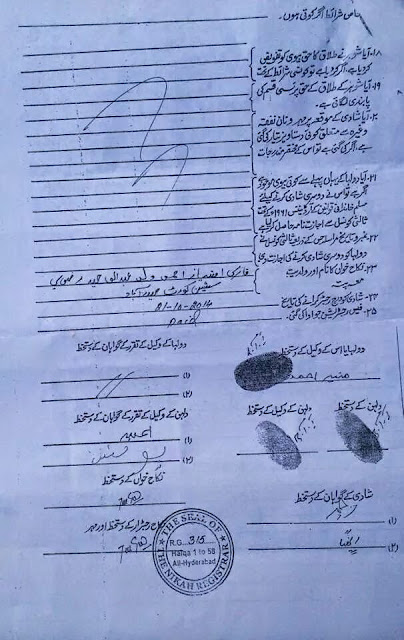 خاص شرائط اگر کوئی ہوں۔
۱۸۔ آیا شوہر نے طلاق کا حق بیوی کو تفویض
کر دیا ہے۔ اگر کر دیا ہے تو کونسی شرائط کے تحت
۱۹۔ آیا شوہر کے طلاق کے حق پر کسی قسم کی
پابندی لگائی ہے۔
۲۰۔ آیا شادی کے موقعہ پر مہر و نان نفقہ
وغیرہ سے متعلق کوئی دستاویز تیار کی گئی
ہے۔ اگر کی گئی ہے تو اس کے مختصر مندرجات
۲۱۔ آیا دولہا کے یہاں پہلے سے کوئی بیوی موجود ہے
اگر ہے تو اس نے دوسری شادی کرنے کیلئے
مسلم خاندانی قوانین کے آرڈیننس ۱۹۶۱ء کے تحت
ثالثی کونسل سے اجازت نامہ حاصل کر لیا ہے
۲۲۔ نمبر و تاریخ مراسلہ جس کے ذریعے ثالثی کونسل نے
دولہا کو دوسری شادی کرنے کی اجازت دی
۲۳۔ نکاح خواں کا نام اور ولدیت
۲۴۔ شادی کو درج رجسٹر کرانے کی تاریخ 21-10-2014
۲۵۔ فیس رجسٹریشن جو ادا کی گئی۔ Paid
دولہا یا اس کے وکیل کے دستخط
منیر احمد
دولہا کے وکیل کے تقرر کے گواہان کے دستخط
(۱)
(۲)
دلہن کے دستخط
دلہن کے وکیل کے دستخط
دلہن کے وکیل کے تقرر کے گواہان کے دستخط
(۱)
(۲)
نکاح خواں کے دستخط
شادی کے گواہان کے دستخط
(۱)
(۲)
نکاح رجسٹرار کے دستخط اور مہر
THE SEAL OF
R.G. 315
Halqa 1 to 58
All-Hyderabad
THE NIKAH REGISTRAR